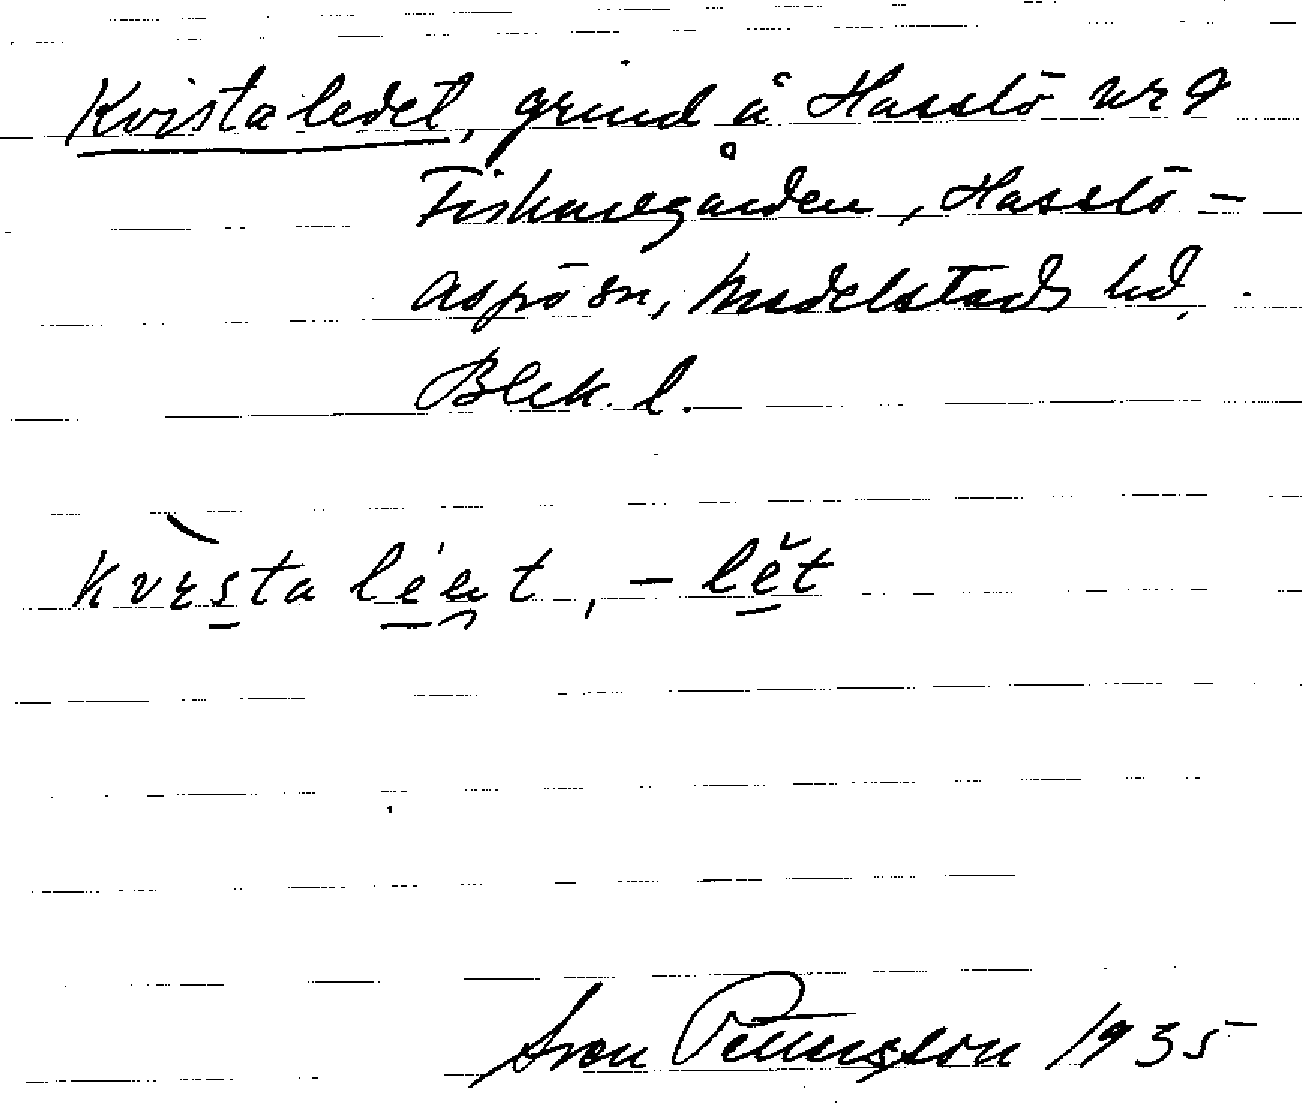 Kvistaledet, grund å Hasslö nr 9
Fiskaregården, Hasslö-
Aspö sn, Medelstads hd,
Blek. l.
kvɪsta léət, -lĕt
Sven Pettersson 1935